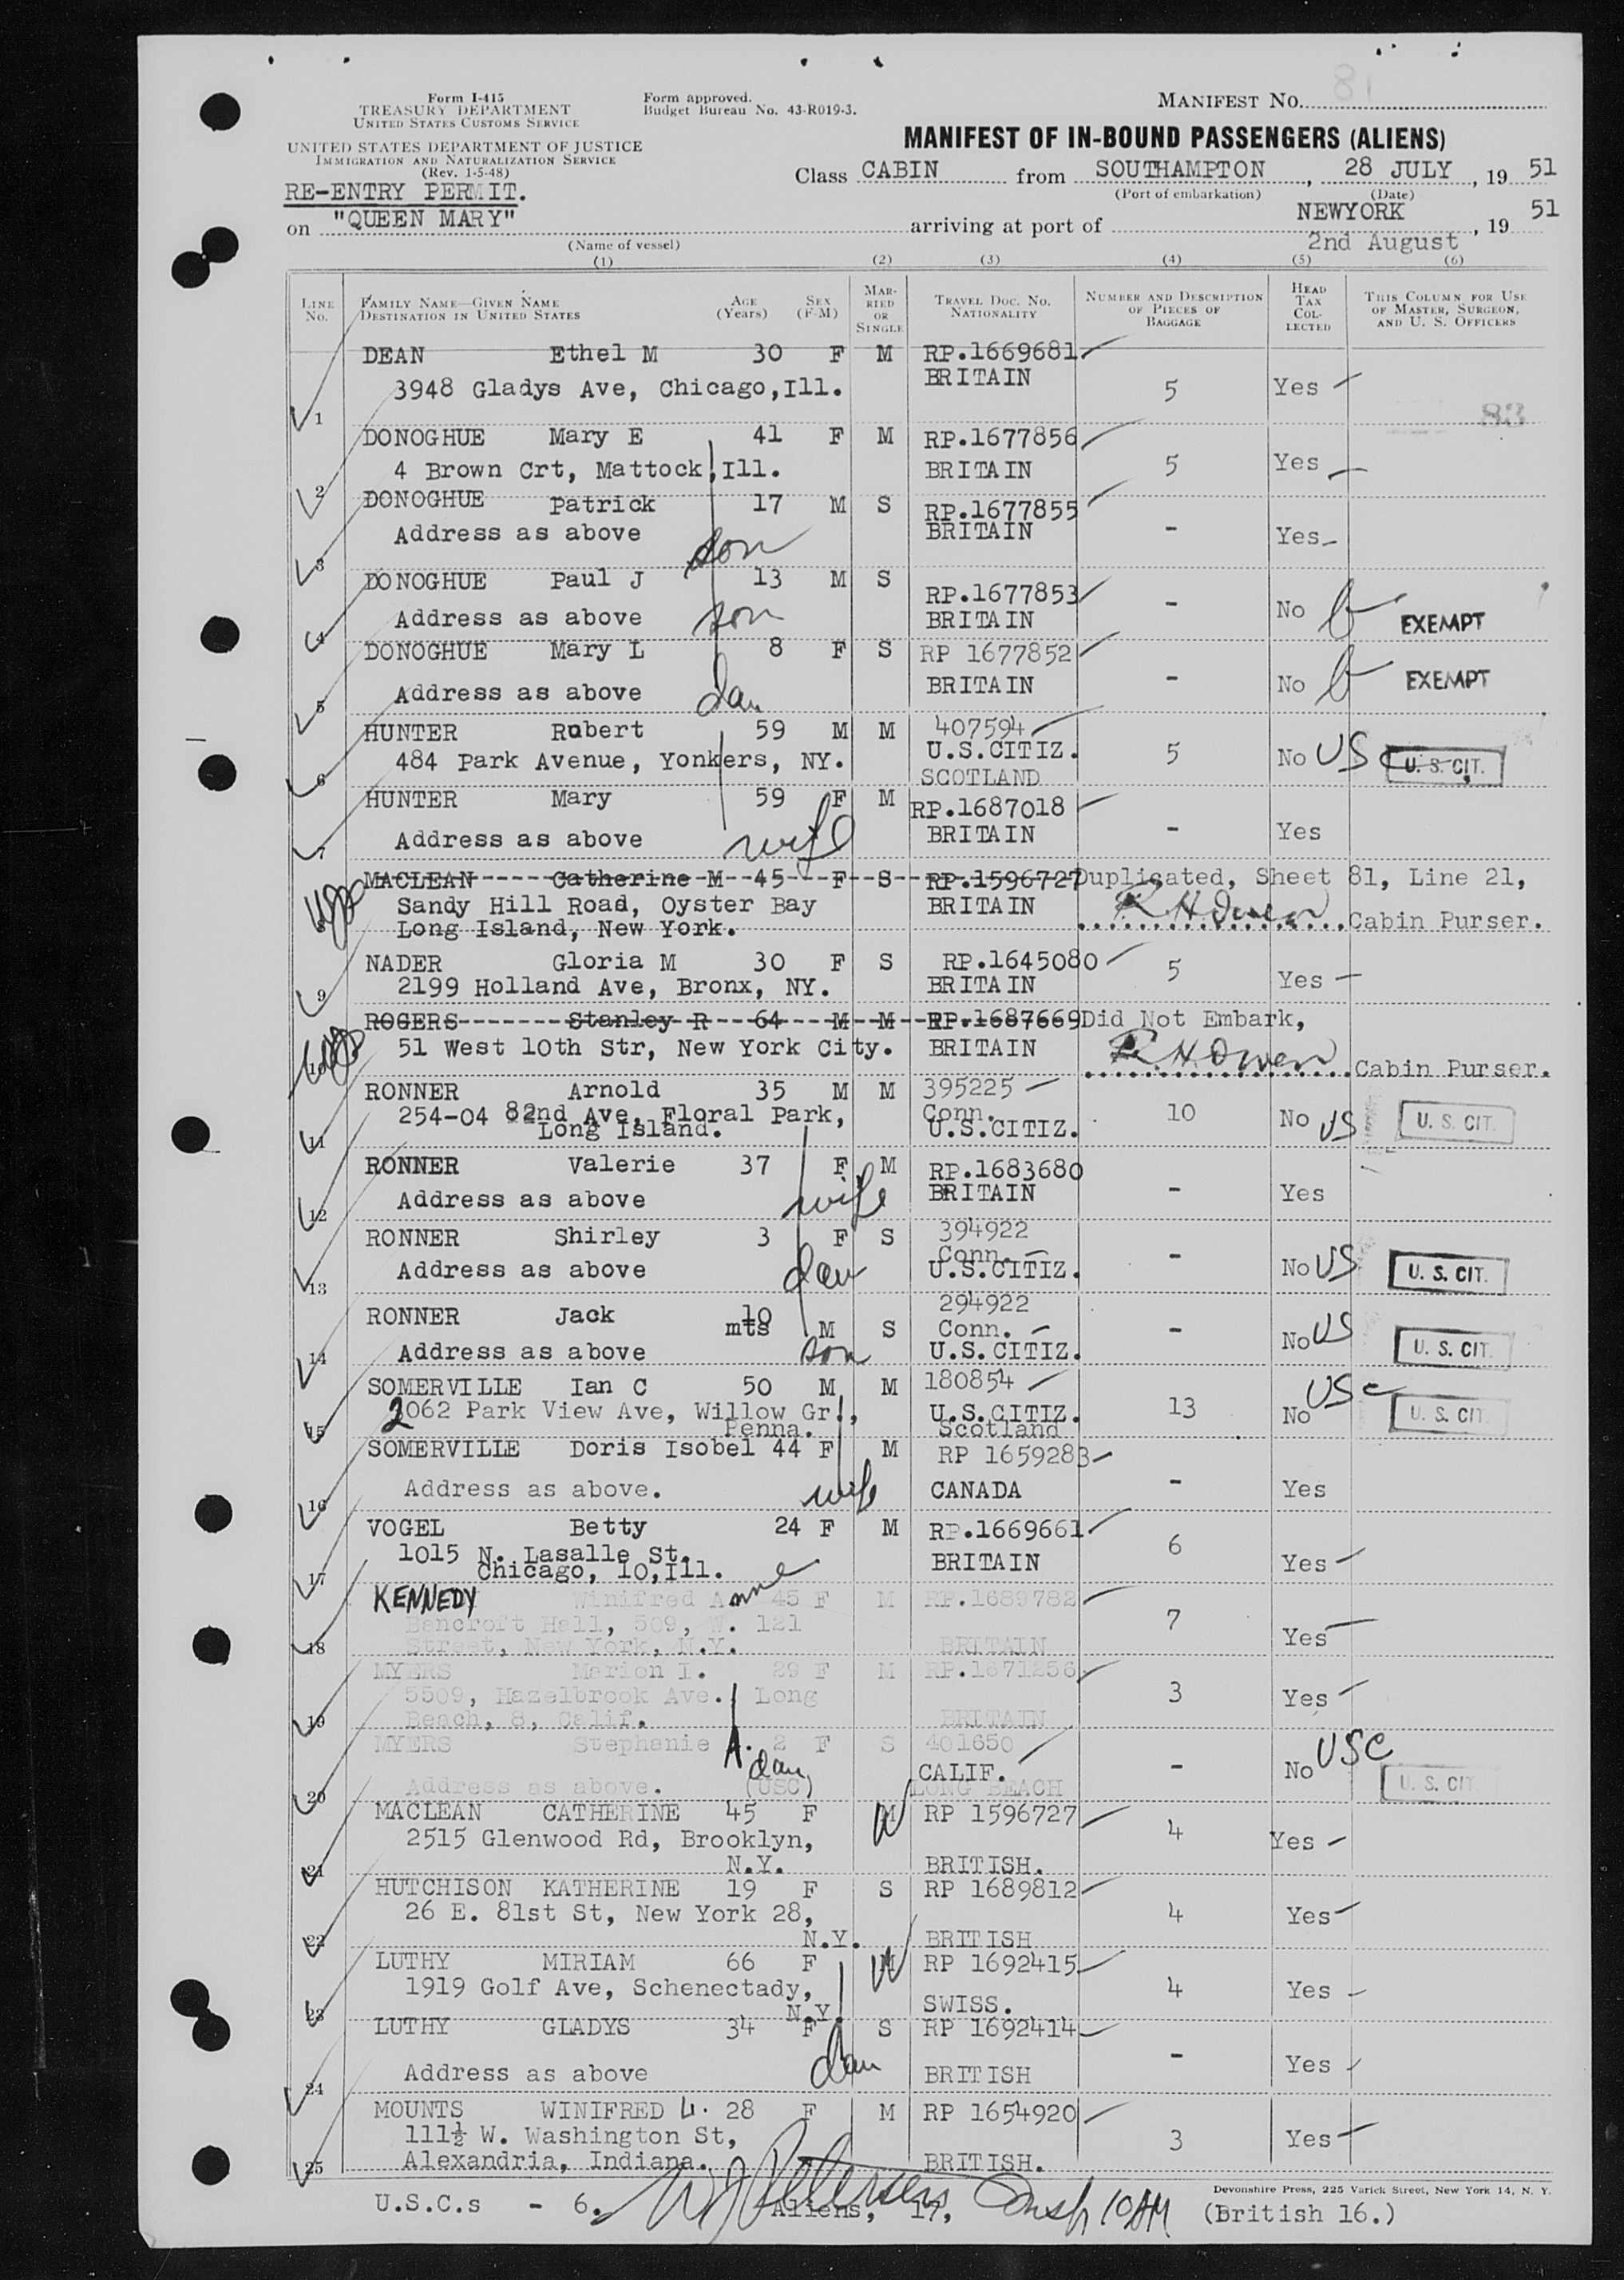 81
Form I-415
TREASURY DEPARTMENT
UNITED STATES CUSTOMS SERVICE
UNITED STATES DEPARTMENT OF JUSTICE
IMMIGRATION AND NATURALIZATION SERVICE
(Rev. 1-5-48)
Form approved.
Budget Bureau No. 43-R019-3.
MANIFEST NO.
MANIFEST OF IN-BOUND PASSENGERS (ALIENS)
Class CABIN from SOUTHAMPTON, 28 JULY, 19 51
(Port of embarkation) (Date)
RE-ENTRY PERMIT.
on "QUEEN MARY" arriving at port of NEWYORK, 19 51
(Name of vessel) 2nd August
(1) (2) (3) (4) (5) (6)
LINE NO. FAMILY NAME—GIVEN NAME DESTINATION IN UNITED STATES AGE (Years) SEX (F-M) MARRIED OR SINGLE TRAVEL DOC. NO. NATIONALITY NUMBER AND DESCRIPTION OF PIECES OF BAGGAGE HEAD TAX COLLECTED THIS COLUMN FOR USE OF MASTER, SURGEON, AND U. S. OFFICERS
DEAN Ethel M 30 F M RP.1669681
1 3948 Gladys Ave, Chicago,Ill. BRITAIN 5 Yes
83
DONOGHUE Mary E 41 F M RP.1677856
2 4 Brown Crt, Mattock,Ill. BRITAIN 5 Yes
DONOGHUE Patrick 17 M S RP.1677855
3 Address as above son BRITAIN - Yes
DONOGHUE Paul J 13 M S RP.1677853
4 Address as above son BRITAIN - No EXEMPT
DONOGHUE Mary L 8 F S RP 1677852
5 Address as above dau BRITAIN - No EXEMPT
HUNTER Robert 59 M M 407594
6 484 Park Avenue, Yonkers, NY. U.S.CITIZ. 5 No USC U. S. CIT.
SCOTLAND
HUNTER Mary 59 F M RP.1687018
7 Address as above wife BRITAIN - Yes
MACLEAN Catherine M 45 F S RP.1596727 Duplicated, Sheet 81, Line 21,
8 Sandy Hill Road, Oyster Bay BRITAIN R H Owen Cabin Purser.
Long Island, New York.
NADER Gloria M 30 F S RP.1645080
9 2199 Holland Ave, Bronx, NY. BRITAIN 5 Yes
ROGERS Stanley R 64 M M RP.1687669 Did Not Embark,
10 51 West 10th Str, New York City. BRITAIN R. H. Owen Cabin Purser.
RONNER Arnold 35 M M 395225
11 254-04 82nd Ave, Floral Park, Conn. 10 No US U. S. CIT.
Long Island. U.S.CITIZ.
RONNER Valerie 37 F M RP.1683680
12 Address as above wife BRITAIN - Yes
RONNER Shirley 3 F S 394922
Conn.
13 Address as above dau U.S.CITIZ. - No US U. S. CIT.
RONNER Jack 10 mts M S 294922
Conn.
14 Address as above son U.S.CITIZ. - No US U. S. CIT.
SOMERVILLE Ian C 50 M M 180854
15 2062 Park View Ave, Willow Gr., U.S.CITIZ. 13 No USC U. S. CIT
Penna. Scotland
SOMERVILLE Doris Isobel 44 F M RP 1659283
16 Address as above. wife CANADA - Yes
VOGEL Betty 24 F M RP.1669661
17 1015 N. Lasalle St. BRITAIN 6 Yes
Chicago, 10,Ill.
KENNEDY Winifred Anne 45 F M RP.1689782
Bancroft Hall, 509, W. 121 7
18 Street, New York, N.Y. BRITAIN Yes
MYERS Marion I. 29 F M RP.1671256
5509, Hazelbrook Ave. Long 3 Yes
19 Beach, 8, Calif. BRITAIN
MYERS Stephanie A. 2 F S 401650
dau CALIF. - No USC U. S. CIT
20 Address as above. (USC) LONG BEACH
MACLEAN CATHERINE 45 F W RP 1596727
2515 Glenwood Rd, Brooklyn, 4 Yes
21 N.Y. BRITISH.
HUTCHISON KATHERINE 19 F S RP 1689812
26 E. 81st St, New York 28, 4 Yes
22 N.Y. BRITISH
LUTHY MIRIAM 66 F W RP 1692415
1919 Golf Ave, Schenectady, 4 Yes
23 N.Y. SWISS.
LUTHY GLADYS 34 F S RP 1692414
24 Address as above dau BRITISH - Yes
MOUNTS WINIFRED L. 28 F M RP 1654920
111½ W. Washington St, 3 Yes
25 Alexandria, Indiana. BRITISH.
Devonshire Press, 225 Varick Street, New York 14, N. Y.
U.S.C.s - 6. Aliens, 17, Insp 10AM (British 16.)